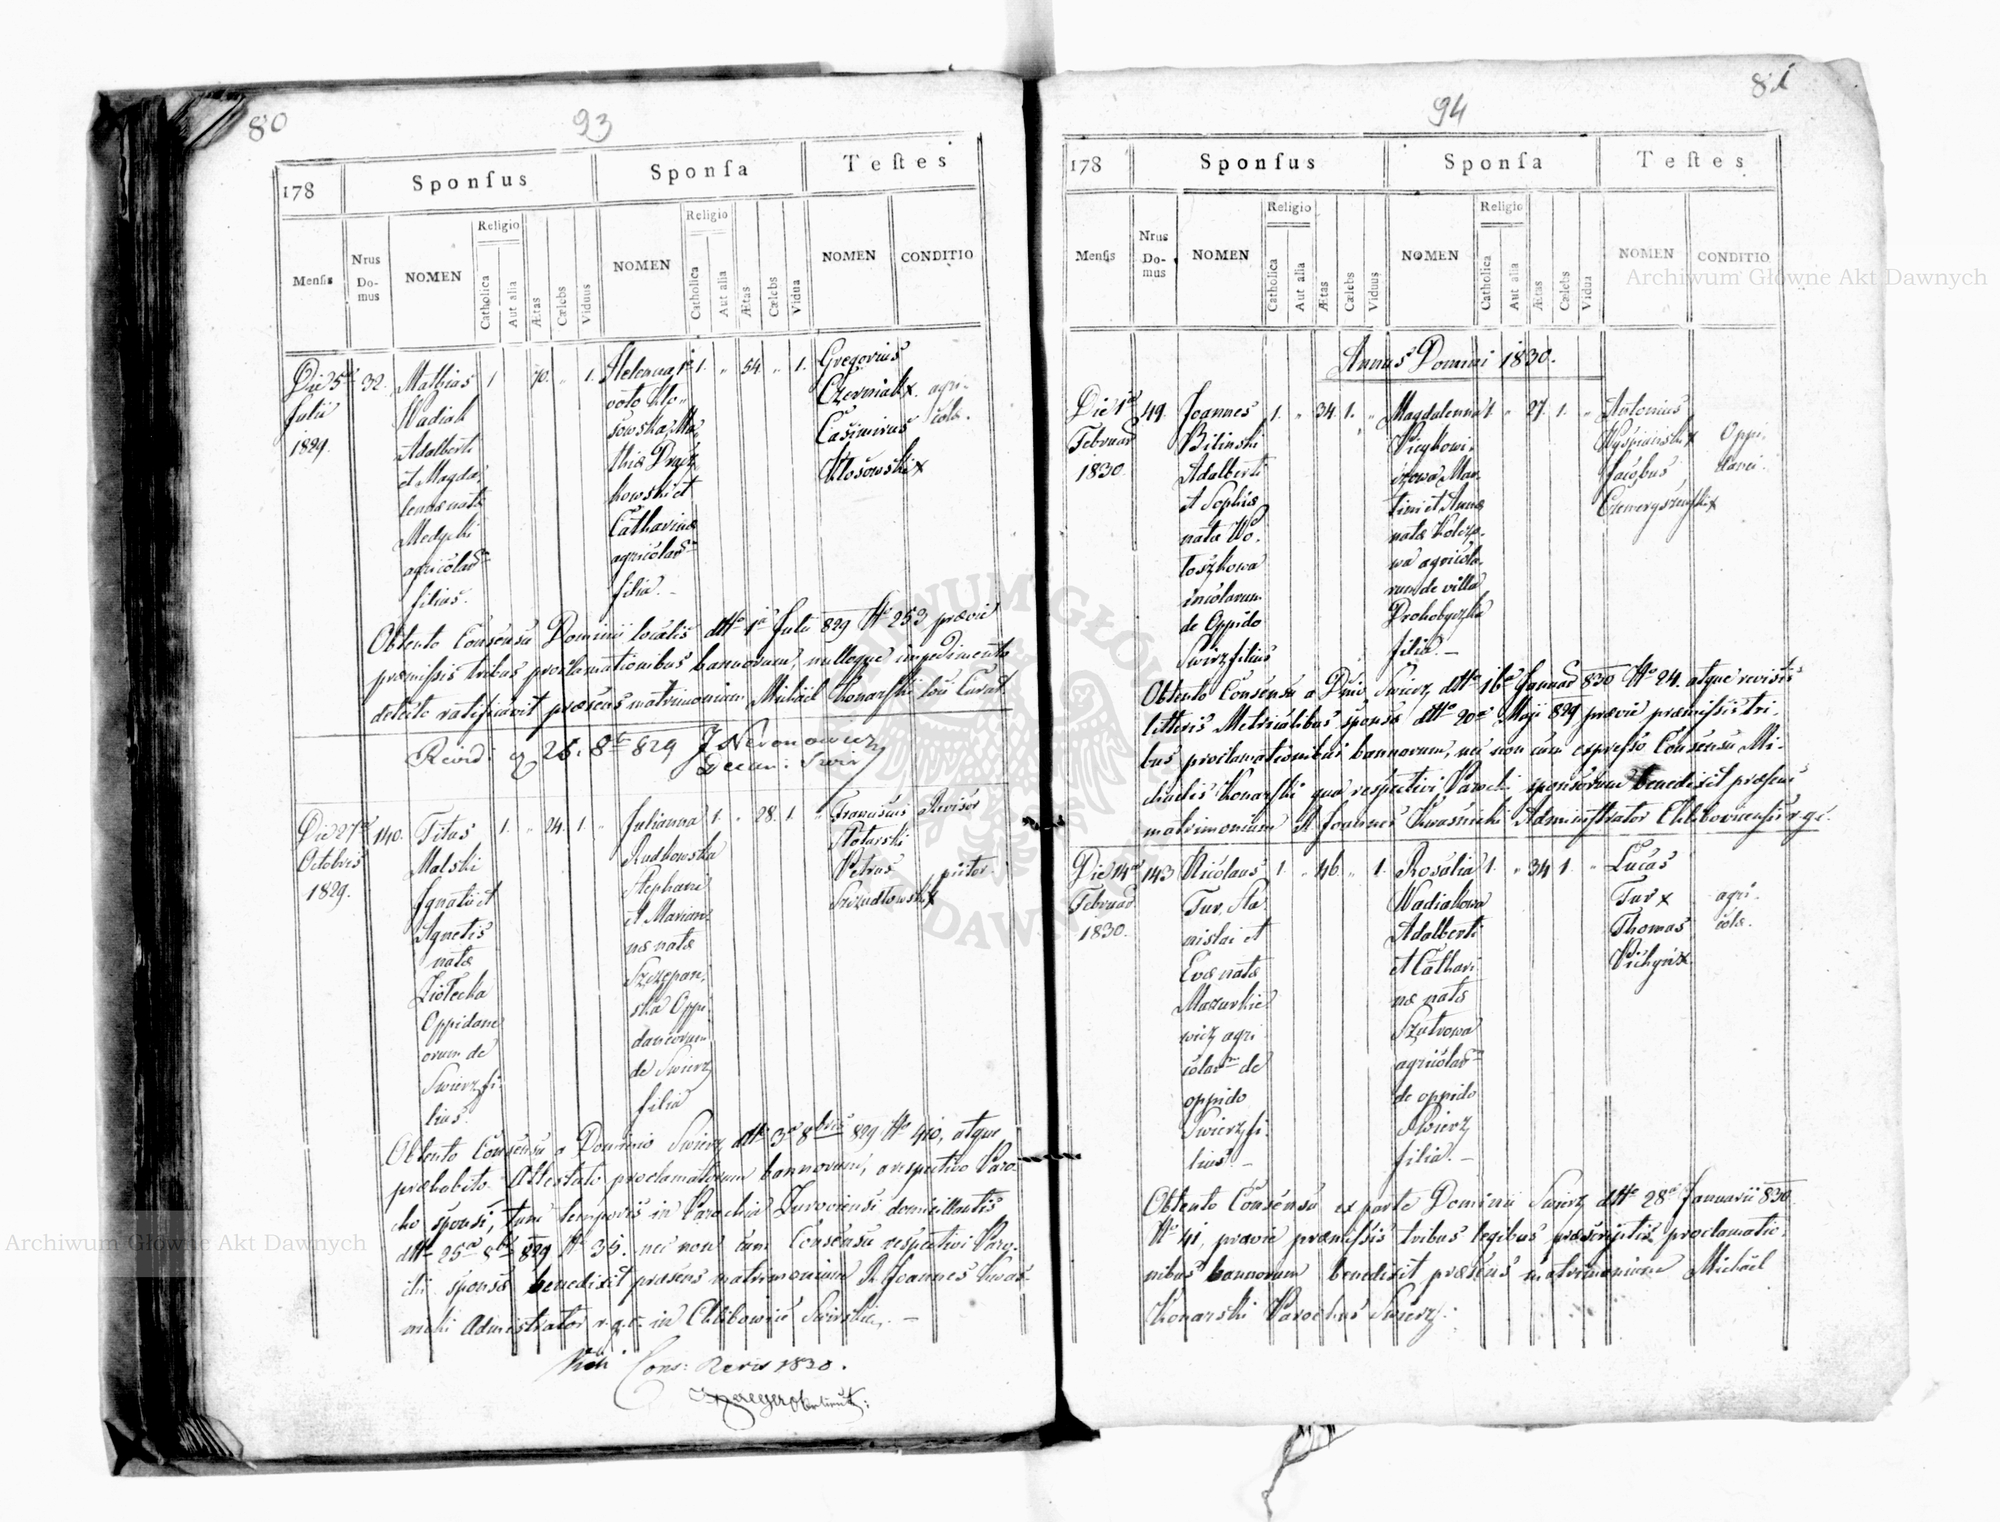 80
93
178
Sponſus
Sponſa
Teſtes
Menſis
Nrus Do-mus
NOMEN
Religio
Catholica
Aut alia
Ætas
Cælebs
Viduus
NOMEN
Religio
Catholica
Aut alia
Ætas
Cælebs
Vidua
NOMEN
CONDITIO
Die 5ta
Julii
1829.
32.
Mathias
Wadiak
Adalberti
et Magda,
lenæ natæ
Medycki
agricolar
filius.
1
70.
„
1.
Helenna 1o
voto Klo„
sowska Ma,
thiæ
kowski et
Catharinæ
agricolar
filia. –
1.
„
54.
„
1.
Gregorius
Czerniak x
Casimirus
Klosowski x
agri-
colæ.
Obtento Consensu Dominii localis dtto 1a Julii 829 No 253, prævie
præmissis tribus proclamationibus bannorum, nulloque impedimento
detecto ratificavit præsens matrimonium Michael Konarski loci Curat
26. 8br 829 J Neronowicz
Die 27a
Octobris
1829.
140.
Titus
Malski
Ignatii et
Agnetis
natæ
Oppidane
orum de
Swierz fi
lius.
1.
„
24.
1.
„
Julianna
Rudkowska
Stephani
et Marian,
næ natæ
Szczepan,
ska Oppi
daneorum
de Swierz
filia
1.
„
28.
1.
„
Franciscus
Petrus
Szczudlowski x
Revisor
Obtento Consensu a Dominio Swierz dtto 3a 8bris 829 No 410, atque
præhabito Attestato proclamatorum bannorum, a respectivo Paro-
cho sponsi, tunc temporis in Parochia domicillantis
dtto 25a 8br 829 No 35. nec non cum Consensu respectivi Paro-
chi sponsæ benedixit præsens matrimonium R Joannes Kwas-
nicki Administrator r. g. c. in Chlibowice Swirskie. –
Cons: 1830.
81
94
178
Sponſus
Sponſa
Teſtes
Menſis
Nrus Do-mus
NOMEN
Religio
Catholica
Aut alia
Ætas
Cælebs
Viduus
NOMEN
Religio
Catholica
Aut alia
Ætas
Cælebs
Vidua
NOMEN
CONDITIO
Annus Domini 1830.
Die 1a
Februar
1830.
49.
Joannes
Bilinski
Adalberti
et Sophiæ
natæ Wo,
loszkowa
incolarum
de Oppido
Swirz filius
1.
„
34.
1.
„
Magdalenna
Tini et Annæ
wa agricola,
rum de villa
filia. –
1.
„
27.
1.
„
Antonius
Wyspianski x
Jacobus
Oppi,
danei.
Obtento Consensu a Dnio Swierz dtto 16a Januar 830 No 24. atque revisis
litteris Metricalibus sponsæ dtto 20a Maji 829 prævie præmissis tri,
bus proclamationibus bannorum, nec non cum expresso Consensu Mi-
chaelis Konarski qua respectivi Parochi sponsorum benedixit præsens
matrimonium R Joannes Kwasnicki Administrator Chlibovicensis r. g. c.
Die 14a
Februar
1830.
143
Nicolaus
Tur, Sta
nislai et
Evæ natæ
Mazurkie
wicz agri
colar de
oppido
Swierz fi,
lius. –
1.
„
46.
„
1.
Rosalia
Wadiakowa
Adalberti
et Cathari
næ natæ
Szutrowa
agricolar
de oppido
Swierz
filia. –
1.
„
34
1.
„
Lucas
Tur x
Thomas
agri,
colæ.
Obtento Consensu ex parte Dominii Swierz dtto 28a Januarii 830
No 41, prævie præmissis tribus legibus præscriptis proclamatio,
nibus bannorum benedixit præsens matrimonium Michael
Konarski Parochus Swierz.
Archiwum Główne Akt Dawnych
Archiwum Główne Akt Dawnych